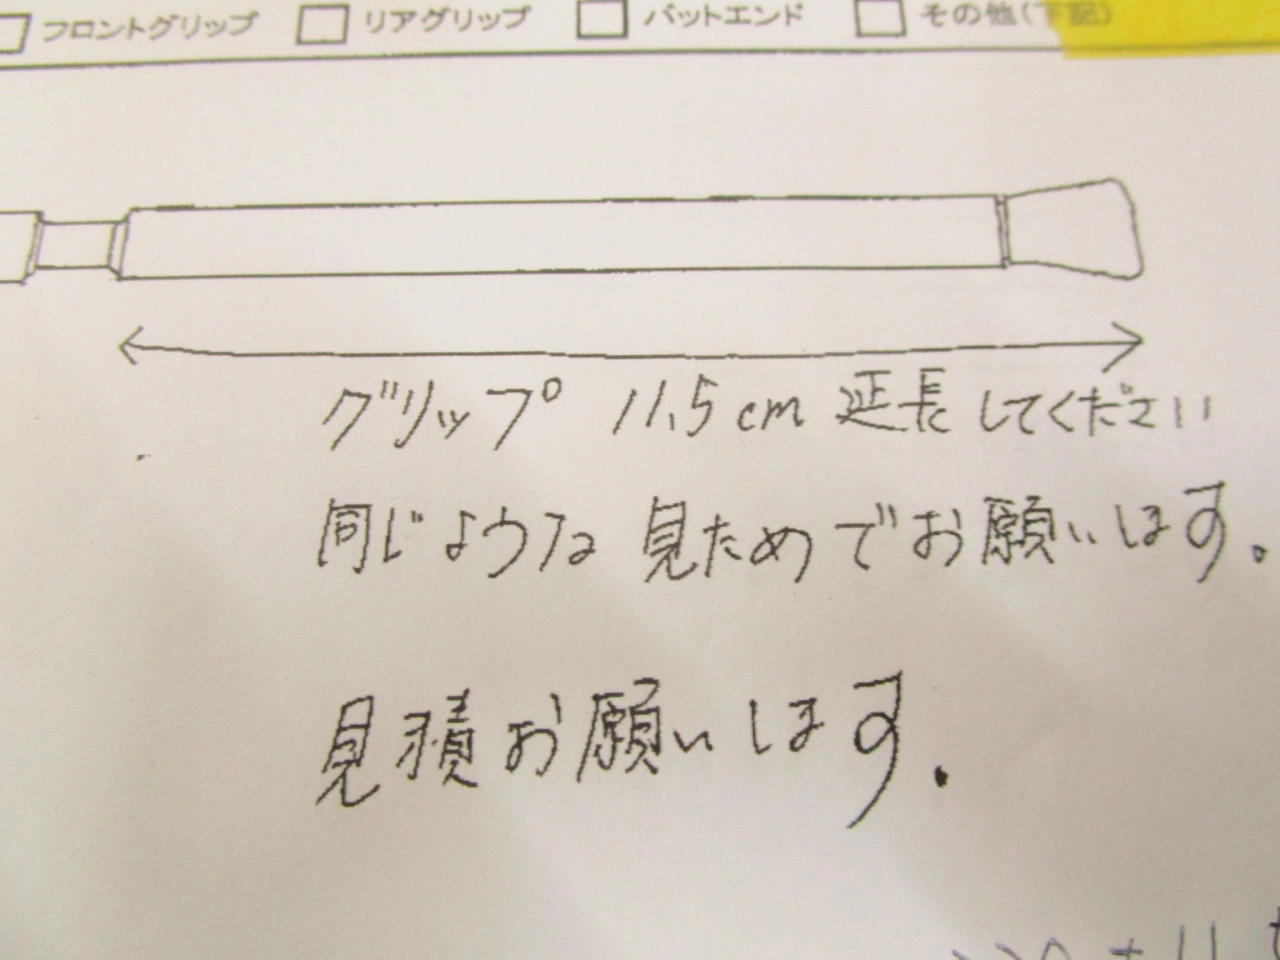 フロントグリップ リアグリップ バットエンド その他(下記)
グリップ 11.5cm 延長してください
同じような見ためでお願いします。
見積お願いします.